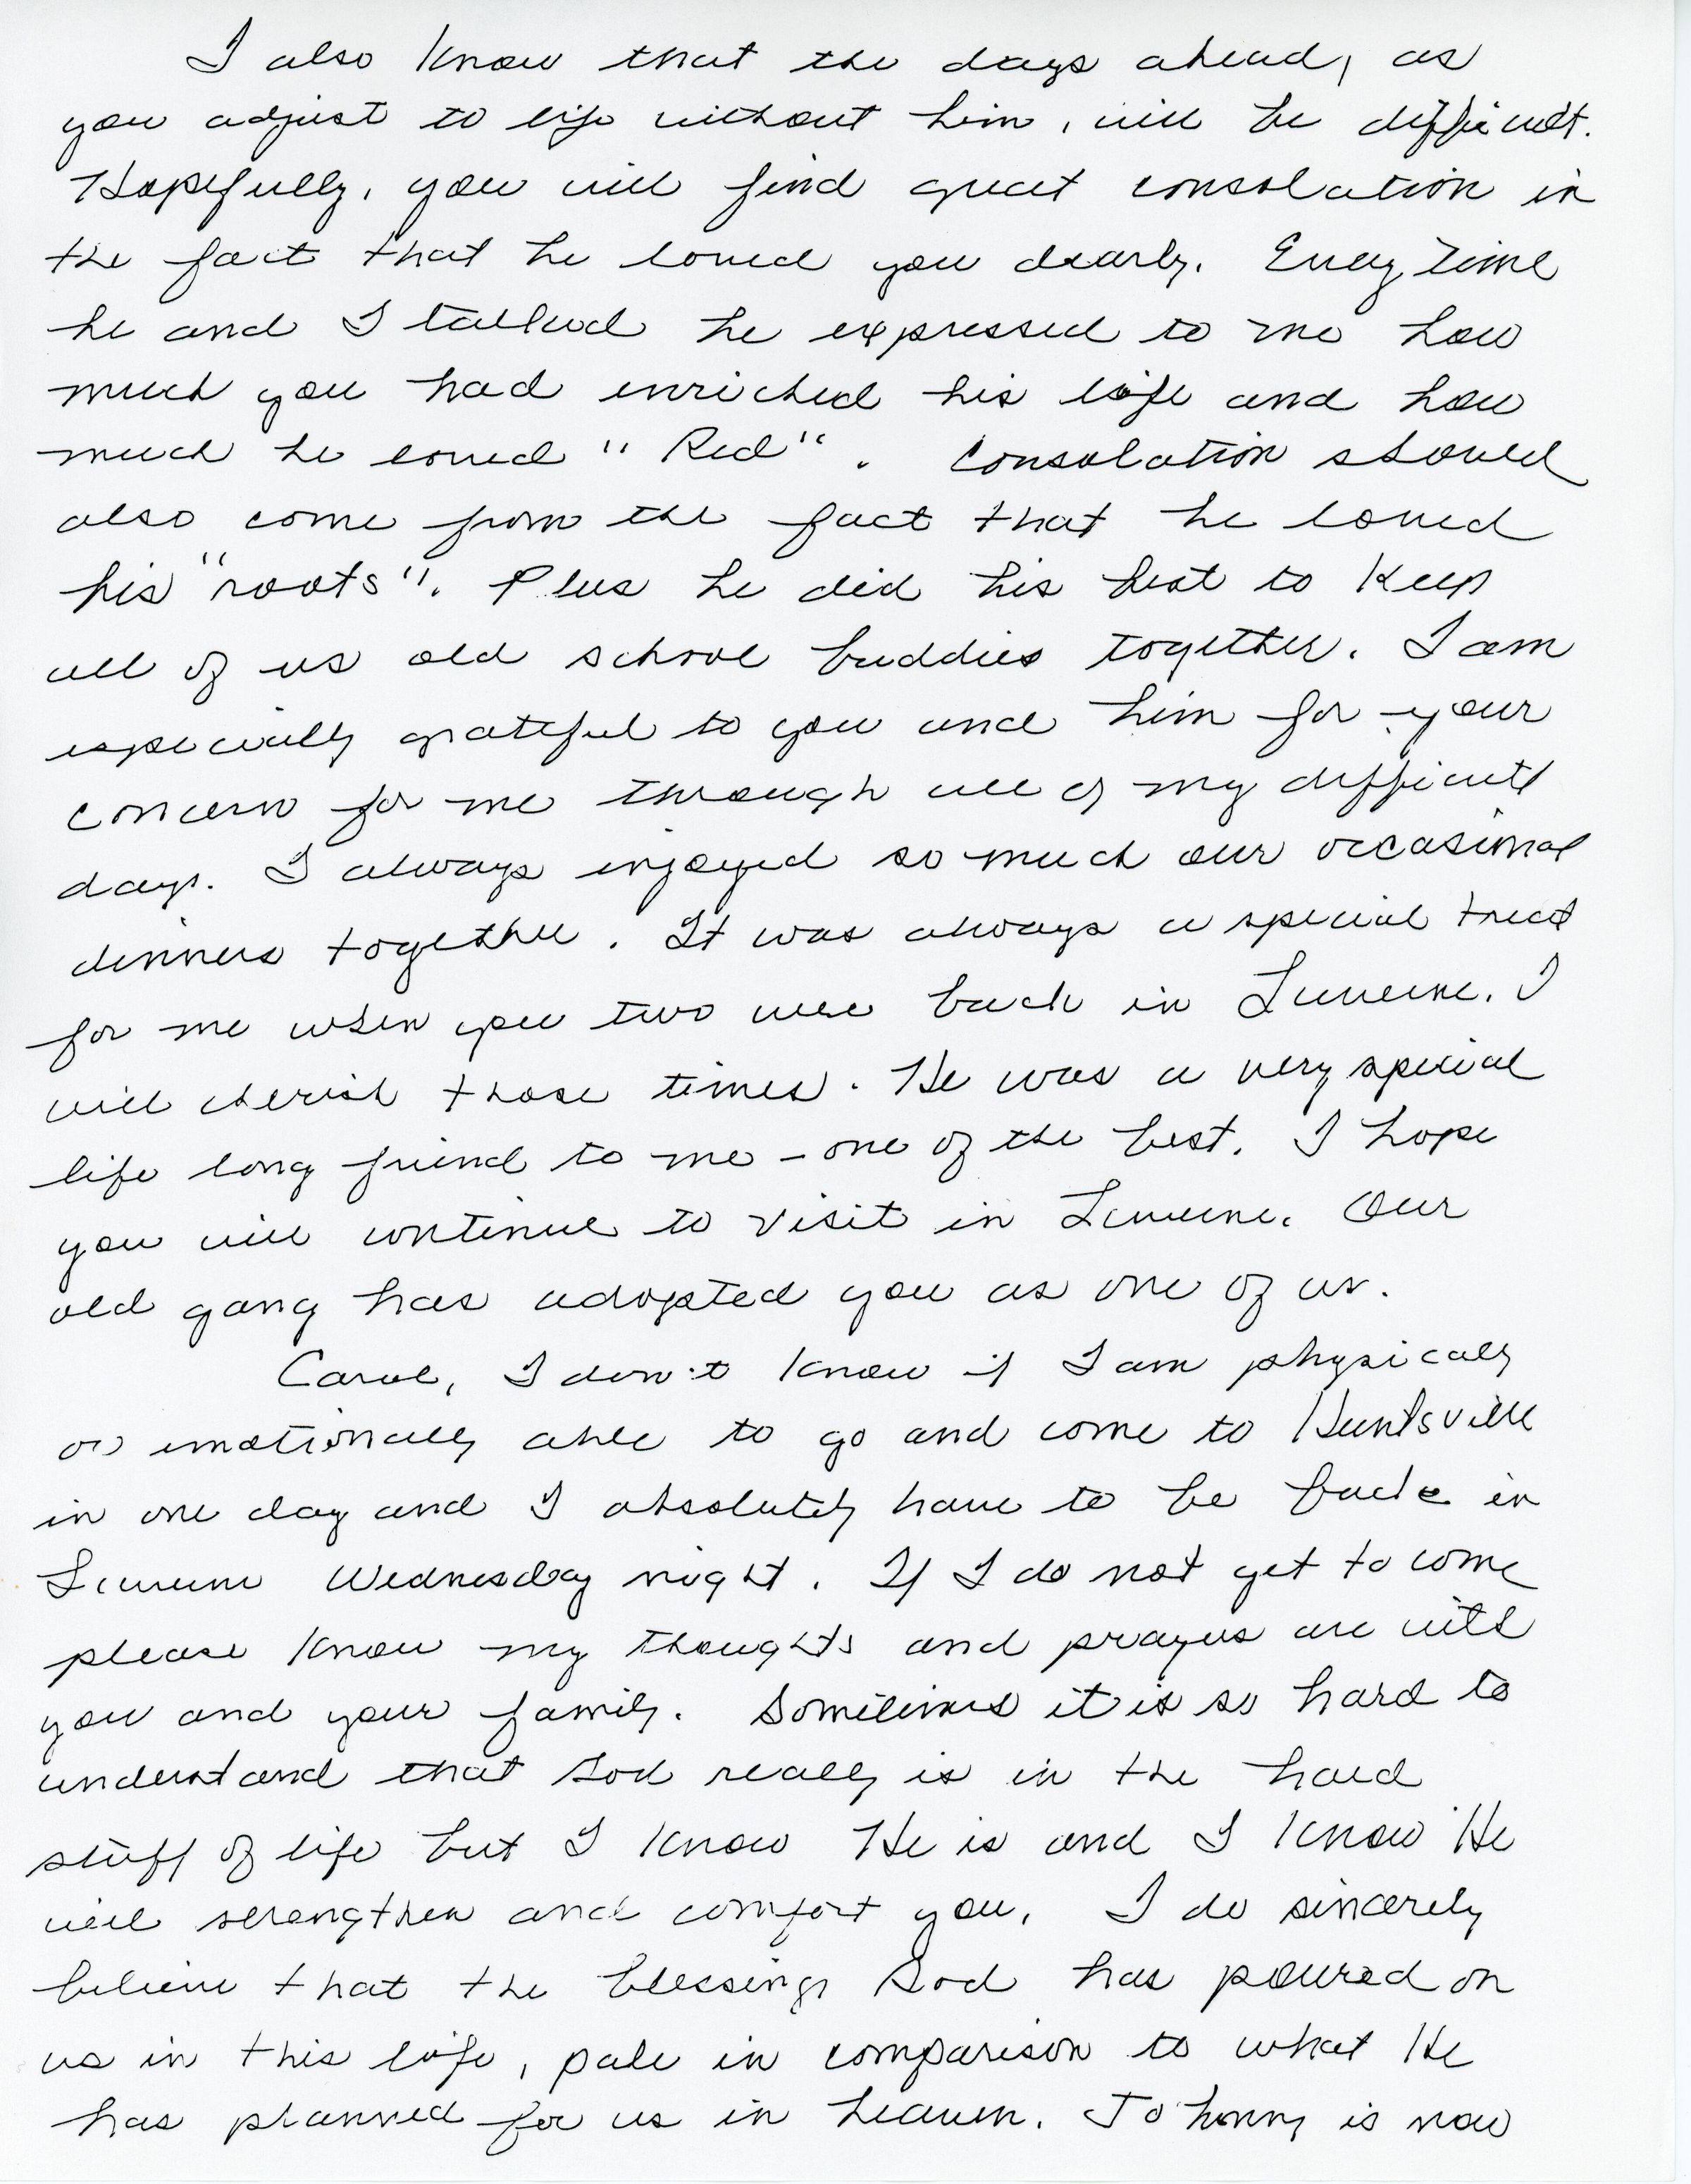 I also know that the days ahead, as
you adjust to life without him, will be difficult.
Hopefully, you will find great consolation in
the fact that he loved you dearly. Every time
he and I talked he expressed to me how
much you had enriched his life and how
much he loved "Red". Consolation should
also come from the fact that he loved
his "roots". Plus he did his best to keep
all of us old school buddies together. I am
especially grateful to you and him for your
concern for me through all of my difficult
days. I always enjoyed so much our occasional
dinners together. It was always a special treat
for me when you two were back in Luverne. I
will cherish those times. He was a very special
life long friend to me - one of the best. I hope
you will continue to visit in Luverne. Our
old gang has adopted you as one of us.
Carol, I don't know if I am physically
or emotionally able to go and come to Huntsville
in one day and I absolutely have to be back in
Luverne Wednesday night. If I do not get to come
please know my thoughts and prayers are with
you and your family. Sometimes it is so hard to
understand that God really is in the hard
stuff of life but I know He is and I know He
will strengthen and comfort you. I do sincerely
believe that the blessings God has poured on
us in this life, pale in comparison to what He
has planned for us in heaven. Johnny is now